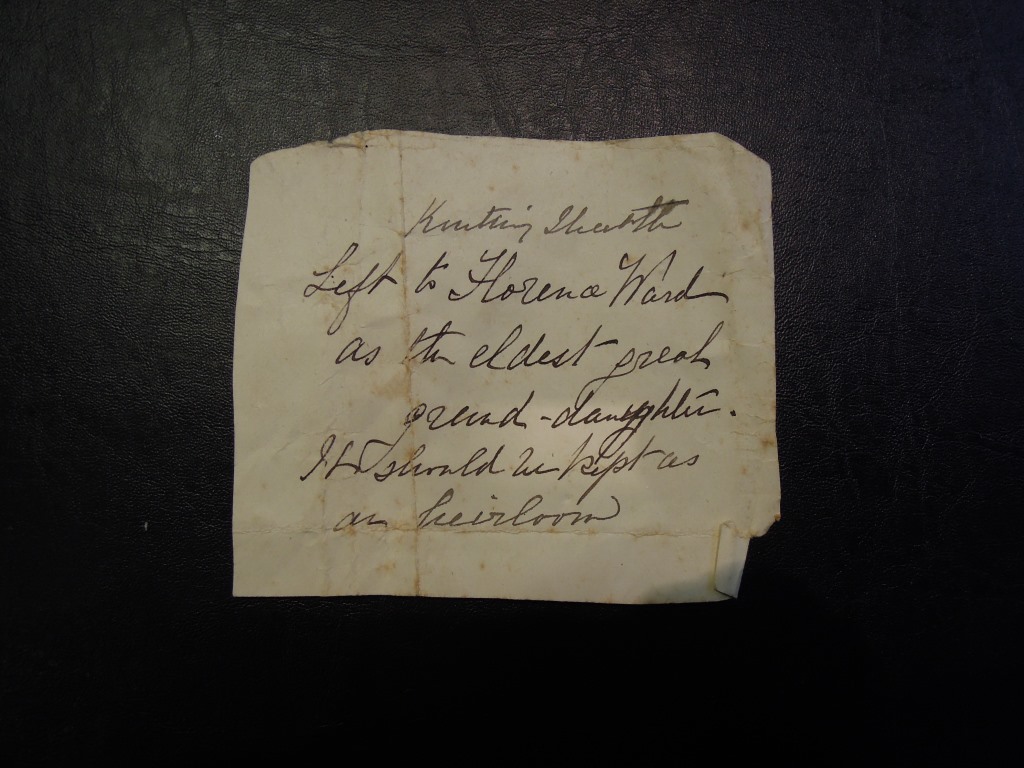 Knitting Sheath
Left to Florence Ward
as the eldest great
grand-daughter.
It should be kept as
an heirloom